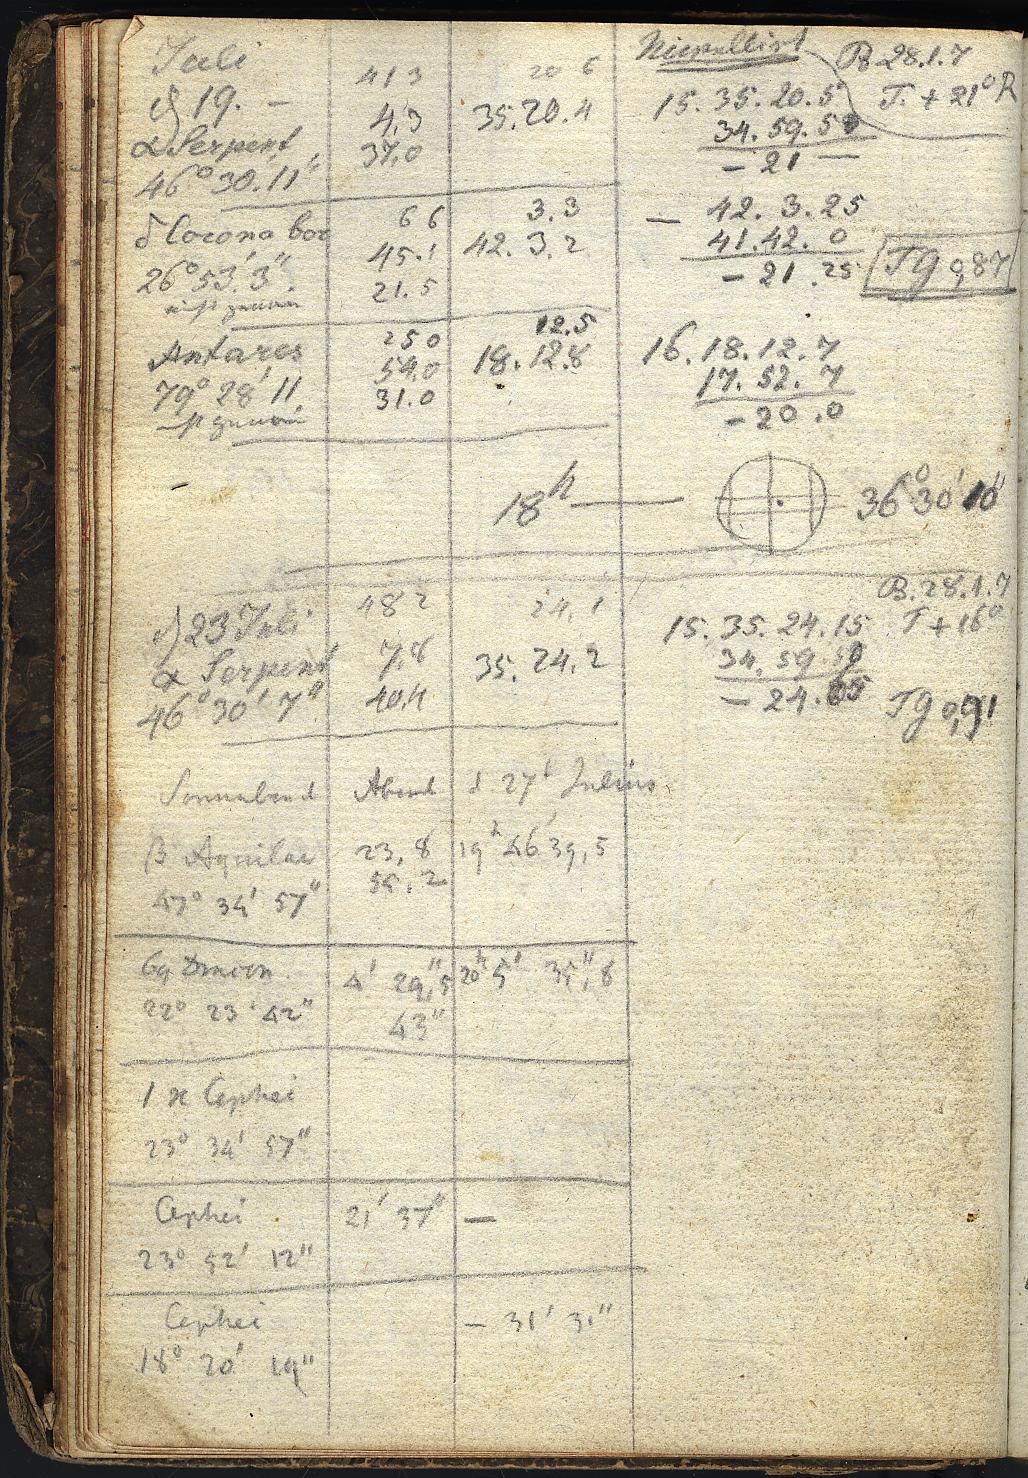 Juli
♂ 19. —
α Serpent
46° 30. 11"
41 3
4.3
37.0
20 6
35.20.4
Nivellirt
B 28.1.7
T. + 21° R
15. 35. 20.5
34. 59. 5
— 21 —
δ Corona bor
26° 53' 3"
6 6
45.1
21.5
3.3
42. 3. 2
— 42. 3. 25
41. 42. 0
— 21. 25
Tg 0,87
Antares
79° 28' 11
25 0
54.0
31.0
12.5
18. 12.8
16. 18. 12. 7
17. 52. 7
— 20 .0
18h
36° 30' 10"
23 Juli
α Serpent
46° 30' 7"
48 2
7.8
40.4
24. 1
35. 24. 2
B. 28. 1. 7
T + 16°
15. 35. 24. 15
34. 59.
— 24. 05
Tg 0,91
Sonnabend Abend d 27' Julius
β Aquilae
47° 34' 57"
23, 8
55. 2
19h 46' 39, 5
22° 23' 42"
4' 29",5
43"
20h 5' 35",8
1 κ Cephei
23° 34' 57"
Cephei
23° 52' 12"
21' 37" —
Cephei
18° 20' 19"
— 31' 31"